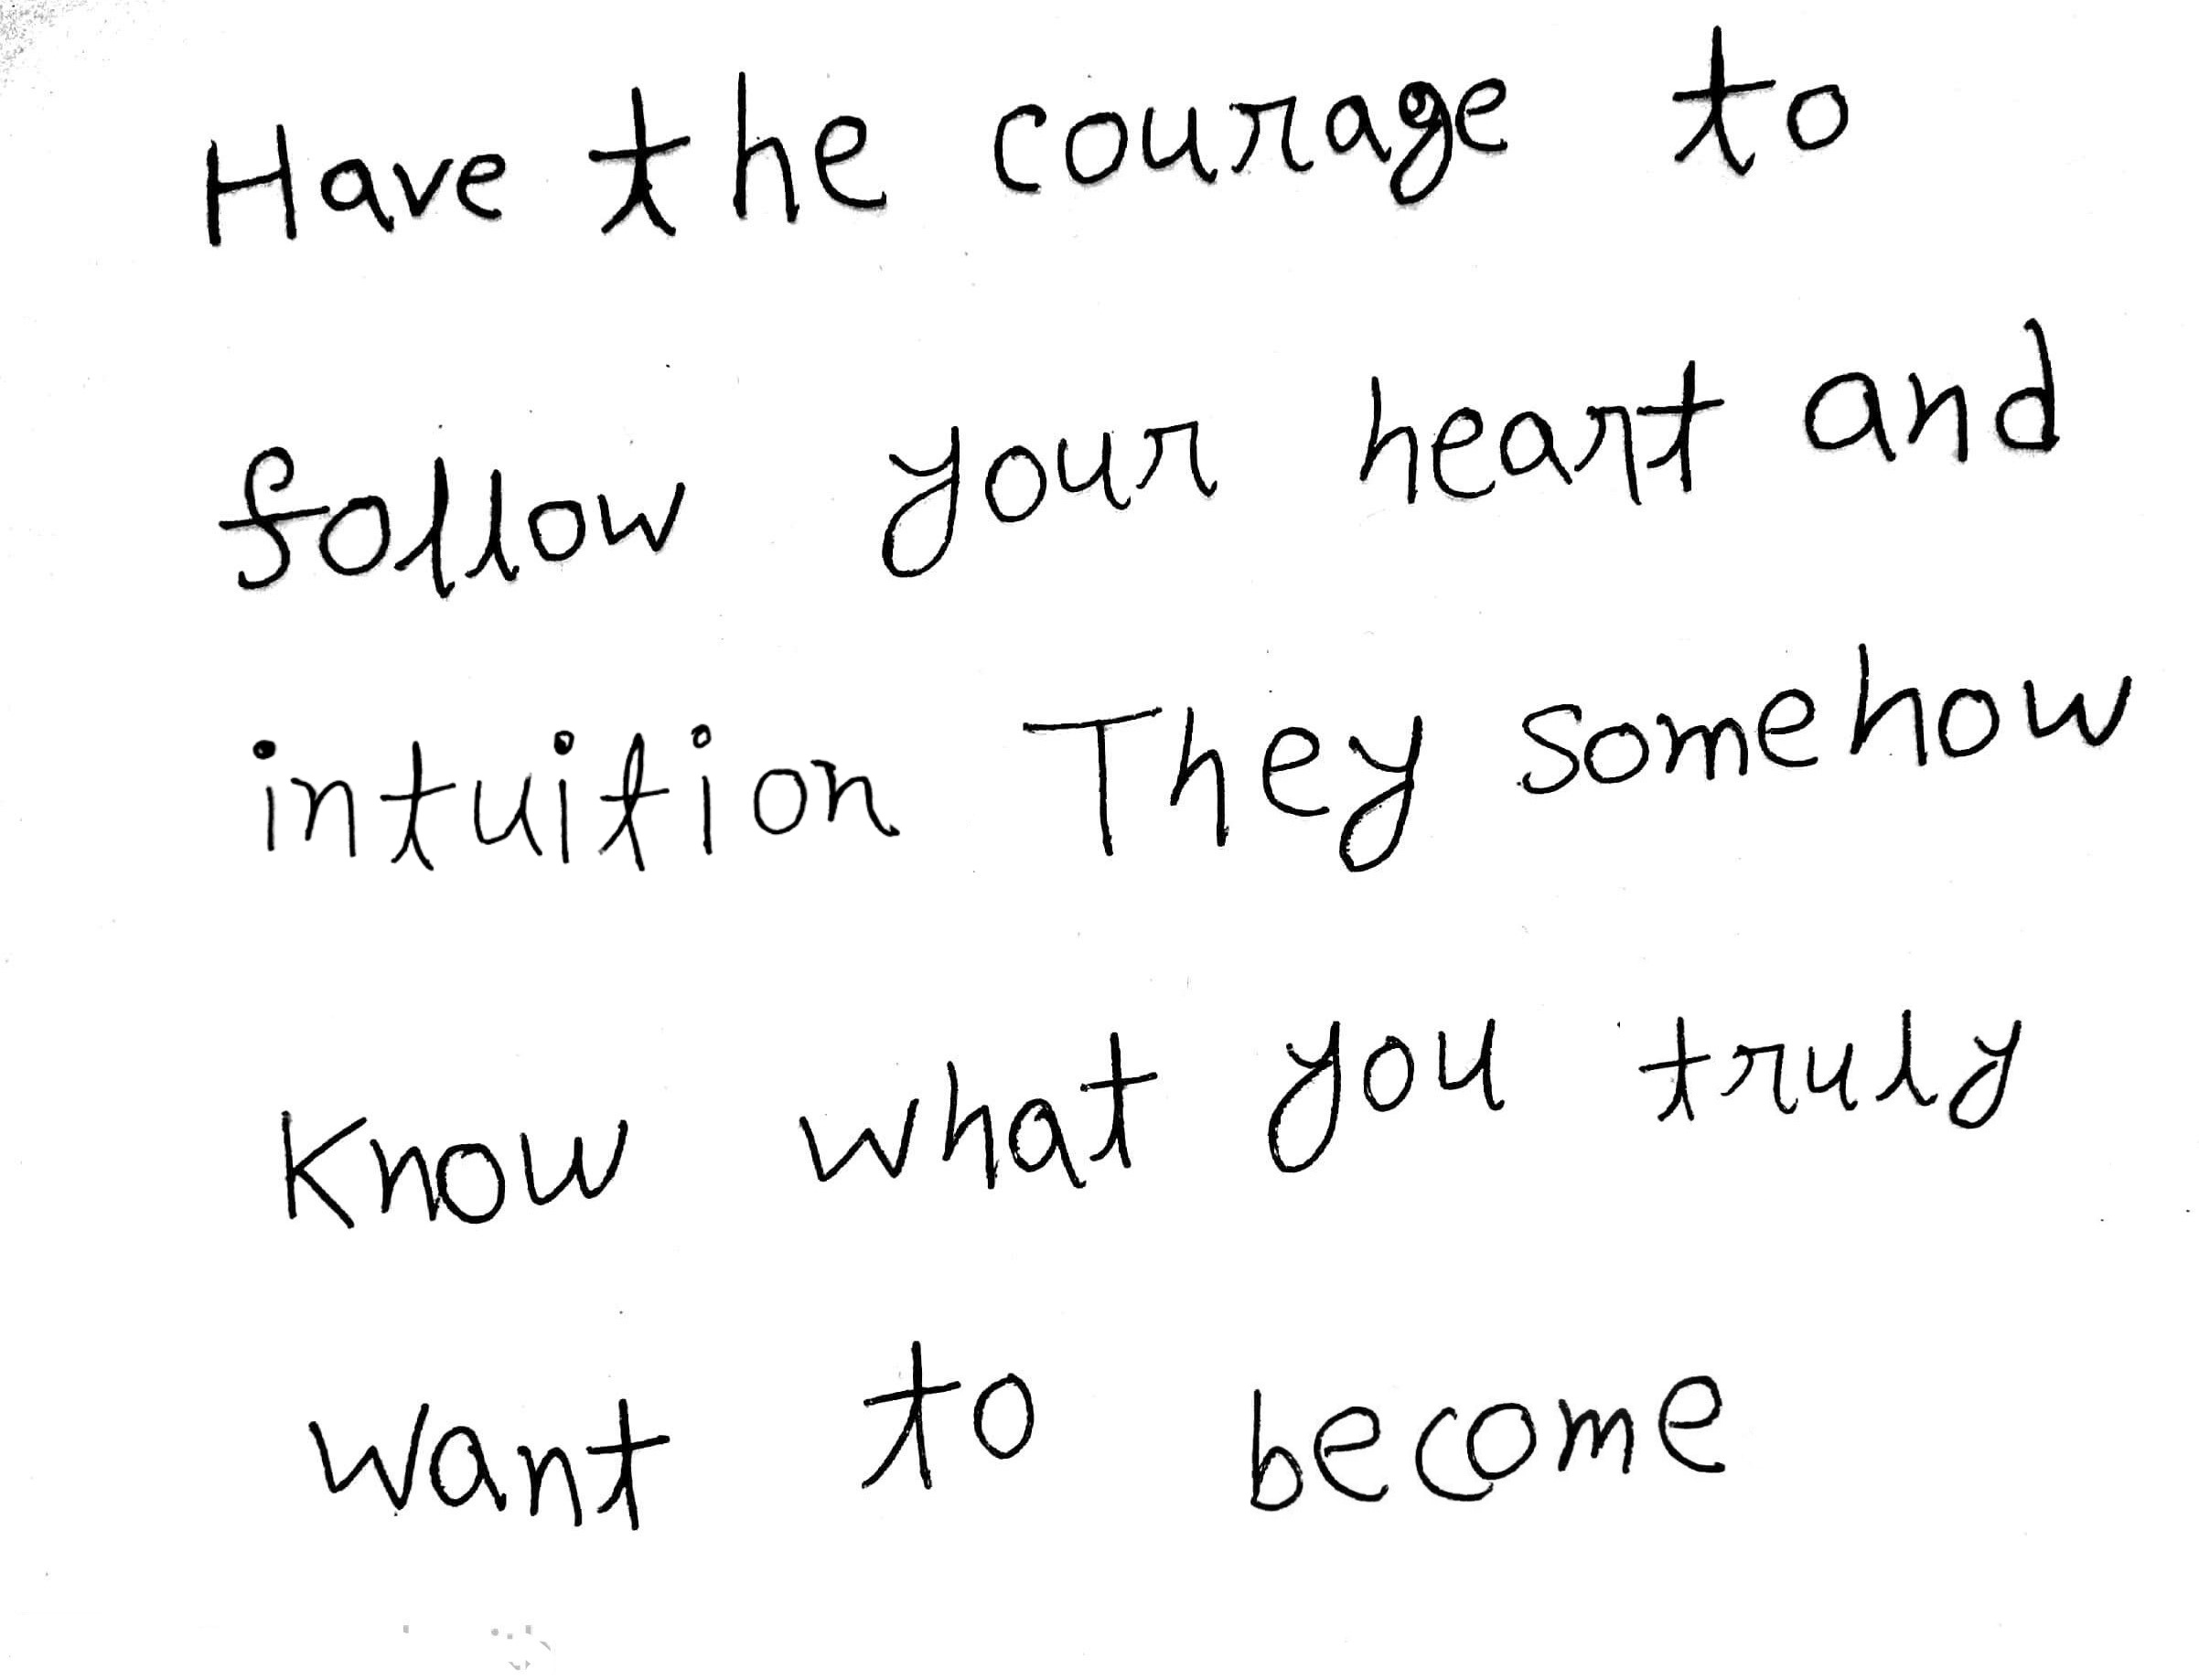 Have the courage to
follow your heart and
intuition They somehow
Know what you truly
want to become